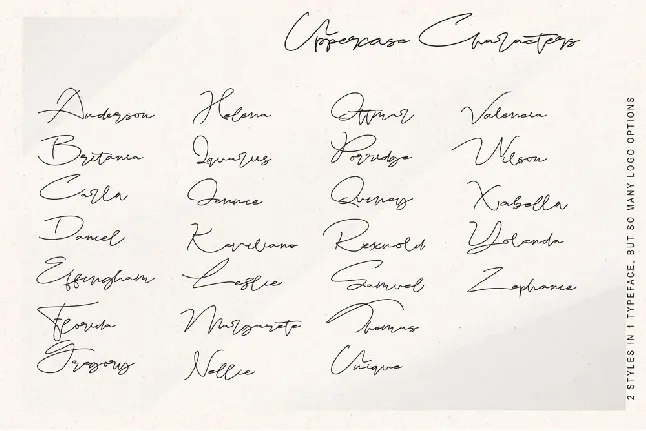 Uppercase Characters
Anderson
Britania
Carla
Daniel
Effingham
Florida
Gregory
Helena
Iquarus
Jennie
Kaviliano
Leslie
Margareta
Nellie
Ottmar
Porridge
Quincy
Rexnold
Samuel
Thomas
Unique
Valencia
Wilson
Xabella
Yolanda
Zephanie
2 STYLES IN 1 TYPEFACE, BUT SO MANY LOGO OPTIONS